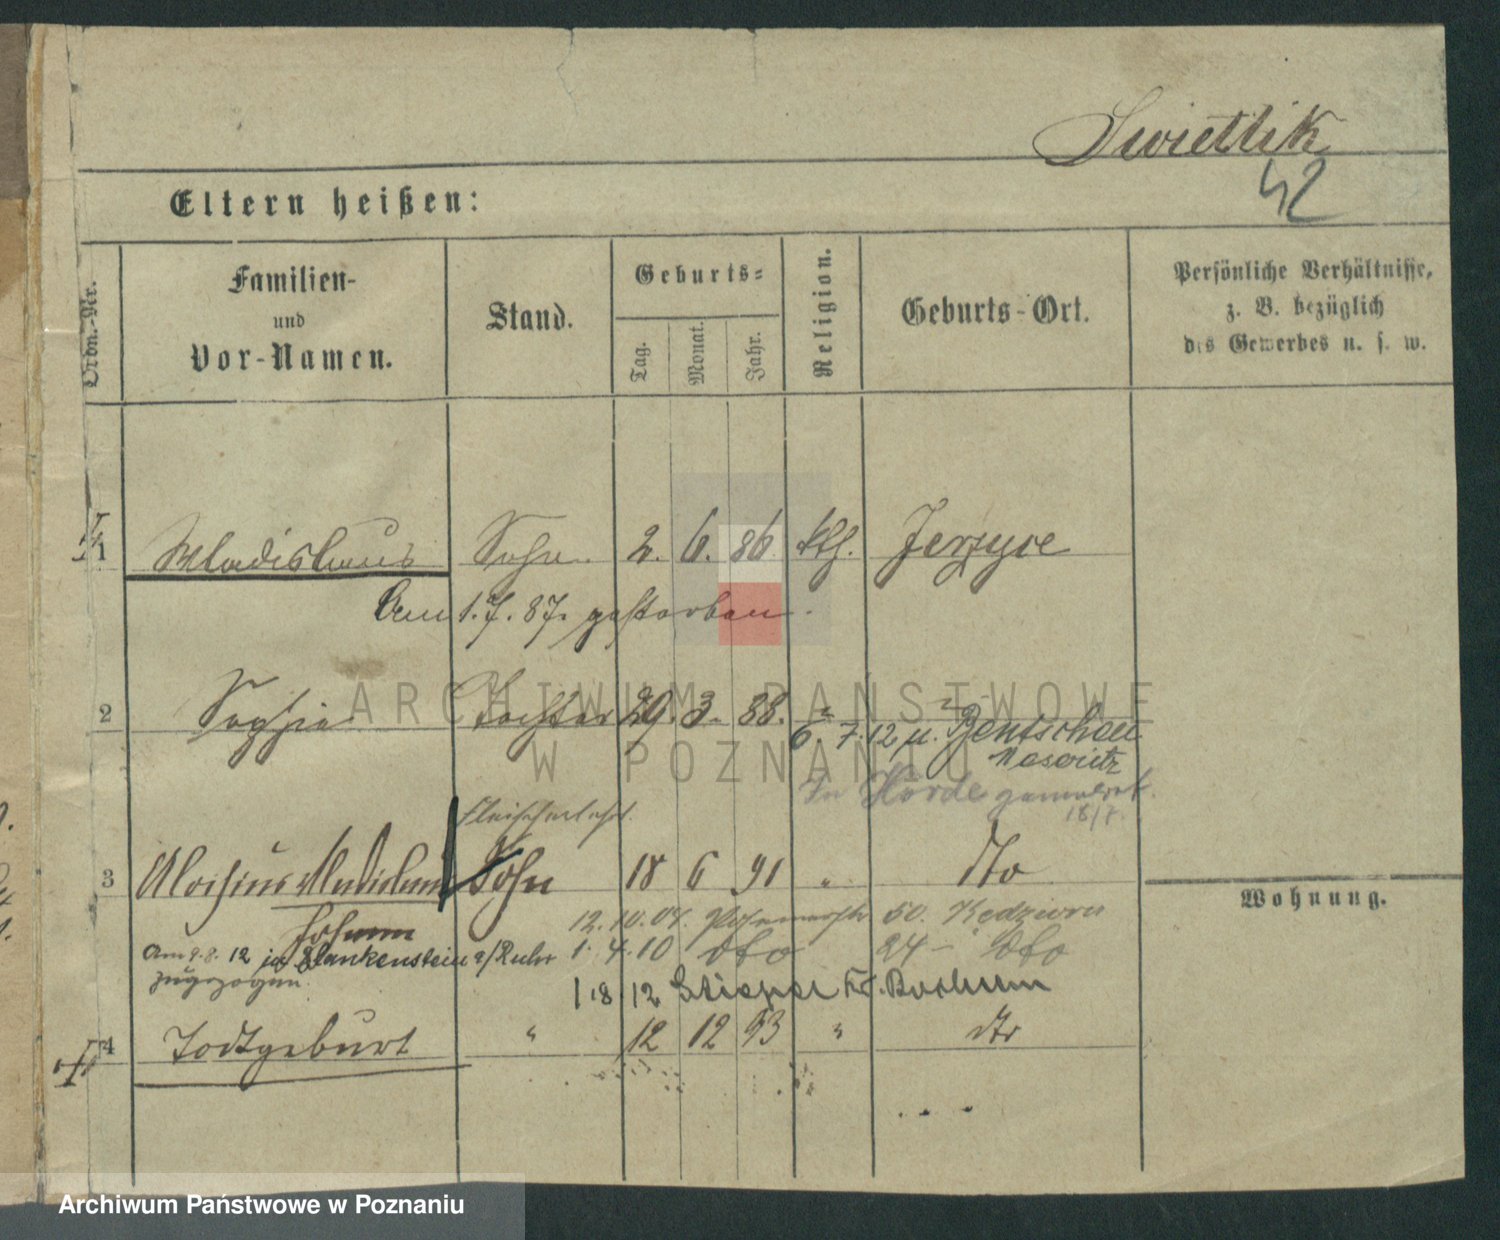 Swietlik
42
Eltern heißen:
Ordn.-Nr.
Familien-
und
Vor-Namen.
Stand.
Geburts-
Tag.
Monat.
Jahr.
Religion.
Geburts-Ort.
Persönliche Verhältnisse,
z. B. bezüglich
des Gewerbes u. s. w.
1 Wladislaus Sohn 2. 6. 86. kth. Jerzyce
Am 1. 7. 87. gestorben.
2 Sophia Tochter 29. 3. 88. "
6. 7. 12 u. Bentschen
Meseritz
In Hörde gemeldet.
18/7.
Fleischerlehrl.
3 Aloisius Wladislaus Sohn 18 6 91 " dto
Wohnung.
Johann
12. 10. 07. 50.
Am 9. 8. 12 in Blankenstein a/Ruhr 1. 4. 10 dto 24 - dto
zugezogen.
1 8 12 Stiepel Kr. Bochum
4 Todtgeburt " 12 12 93 " dto
ARCHIWUM PAŃSTWOWE
W POZNANIU
Archiwum Państwowe w Poznaniu